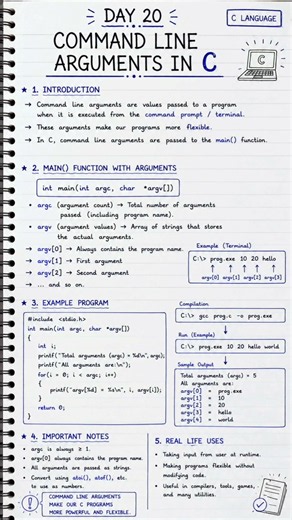 DAY 20
C LANGUAGE
COMMAND LINE
ARGUMENTS IN C
★ 1. INTRODUCTION
→ Command line arguments are values passed to a program
when it is executed from the command prompt / terminal.
→ These arguments make our programs more flexible.
→ In C, command line arguments are passed to the main() function.
★ 2. MAIN() FUNCTION WITH ARGUMENTS
int main(int argc, char *argv[])
• argc (argument count) → Total number of arguments
passed (including program name).
• argv (argument values) → Array of strings that stores
the actual arguments.
→ argv[0] → Always contains the program name.
→ argv[1] → First argument
→ argv[2] → Second argument
→ ... and so on.
Example (Terminal)
C:\> prog.exe 10 20 hello
↑ ↑ ↑ ↑
argv[0] argv[1] argv[2] argv[3]
★ 3. EXAMPLE PROGRAM
#include <stdio.h>
int main(int argc, char *argv[])
{
int i;
printf("Total arguments (argc) = %d\n", argc);
printf("All arguments are:\n");
for(i = 0; i < argc; i++)
{
printf("argv[%d] = %s\n", i, argv[i]);
}
return 0;
}
Compilation
C:\> gcc prog.c -o prog.exe
Run (Example)
C:\> prog.exe 10 20 hello world
Sample Output
Total arguments (argc) = 5
All arguments are:
argv[0] = prog.exe
argv[1] = 10
argv[2] = 20
argv[3] = hello
argv[4] = world
★ 4. IMPORTANT NOTES
• argc is always ≥ 1.
• argv[0] always contains the program name.
• All arguments are passed as strings.
• Convert using atoi(), atof(), etc.
to use as numbers.
COMMAND LINE ARGUMENTS
MAKE OUR C PROGRAMS
MORE POWERFUL AND FLEXIBLE.
5. REAL LIFE USES
• Taking input from user at runtime.
• Making programs flexible without
modifying code.
• Useful in compilers, tools, games,
and many utilities.